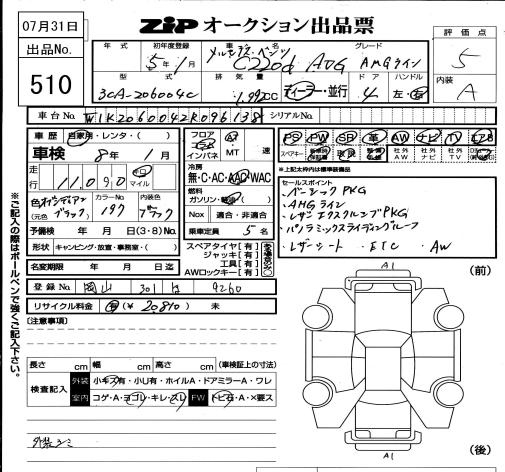 07月31日
ZIP オークション出品票
評価点
出品No.
510
年式 初年度登録 車名 グレード
5年1月 メルセデス・ベンツ C220d AVG AMGライン
5
型式 排気量 ドア ハンドル
内装
3CA-206004C 1,992CC ディーラー・並行 4 左・右
A
車台No. W1K2060042R096138 シリアルNo.
車歴 自家用・レンタ・( )
車検 8年 1月
走行 11,090 キロ マイル
色 オブシディアンブラック カラーNo. 197 内装色 ブラック
(元色 )
予備検 年 月 日(3・8)No.
形状 キャンピング・放送・事務室・( )
名変期限 年 月 日迄
フロア インパネ MT 速
冷房
無・C・AC・AAC・WAC
燃料
ガソリン・軽油( )
Nox 適合・非適合
乗車定員 5名
スペアタイヤ[有]
ジャッキ[有]
工具[有]
AWロックキー[有]
PS PW SR 革 AW ナビ TV
スペアキー 社外AW 社外ナビ 社外TV
*上記太枠内は標準装備品
セールスポイント
・ベーシックPKG
・AMGライン
・レザーエクスクルーシブPKG
・パノラミックスライディングルーフ
・レザーシート ・ETC ・AW
登録No. 岡山 301 は 9260
リサイクル料金 有(¥20810) 未
(注意事項)
※ご記入の際はボールペンで強くご記入下さい。
A1
(前)
長さ cm 幅 cm 高さ cm (車検証上の寸法)
検査記入 外装 小キズ有・小凹有・ホイルA・ドアミラーA・ワレ
室内 コゲ・A・ヨゴレ・キレ・スレ FW トビ石・A・×要ス
外装シミ
A1
(後)